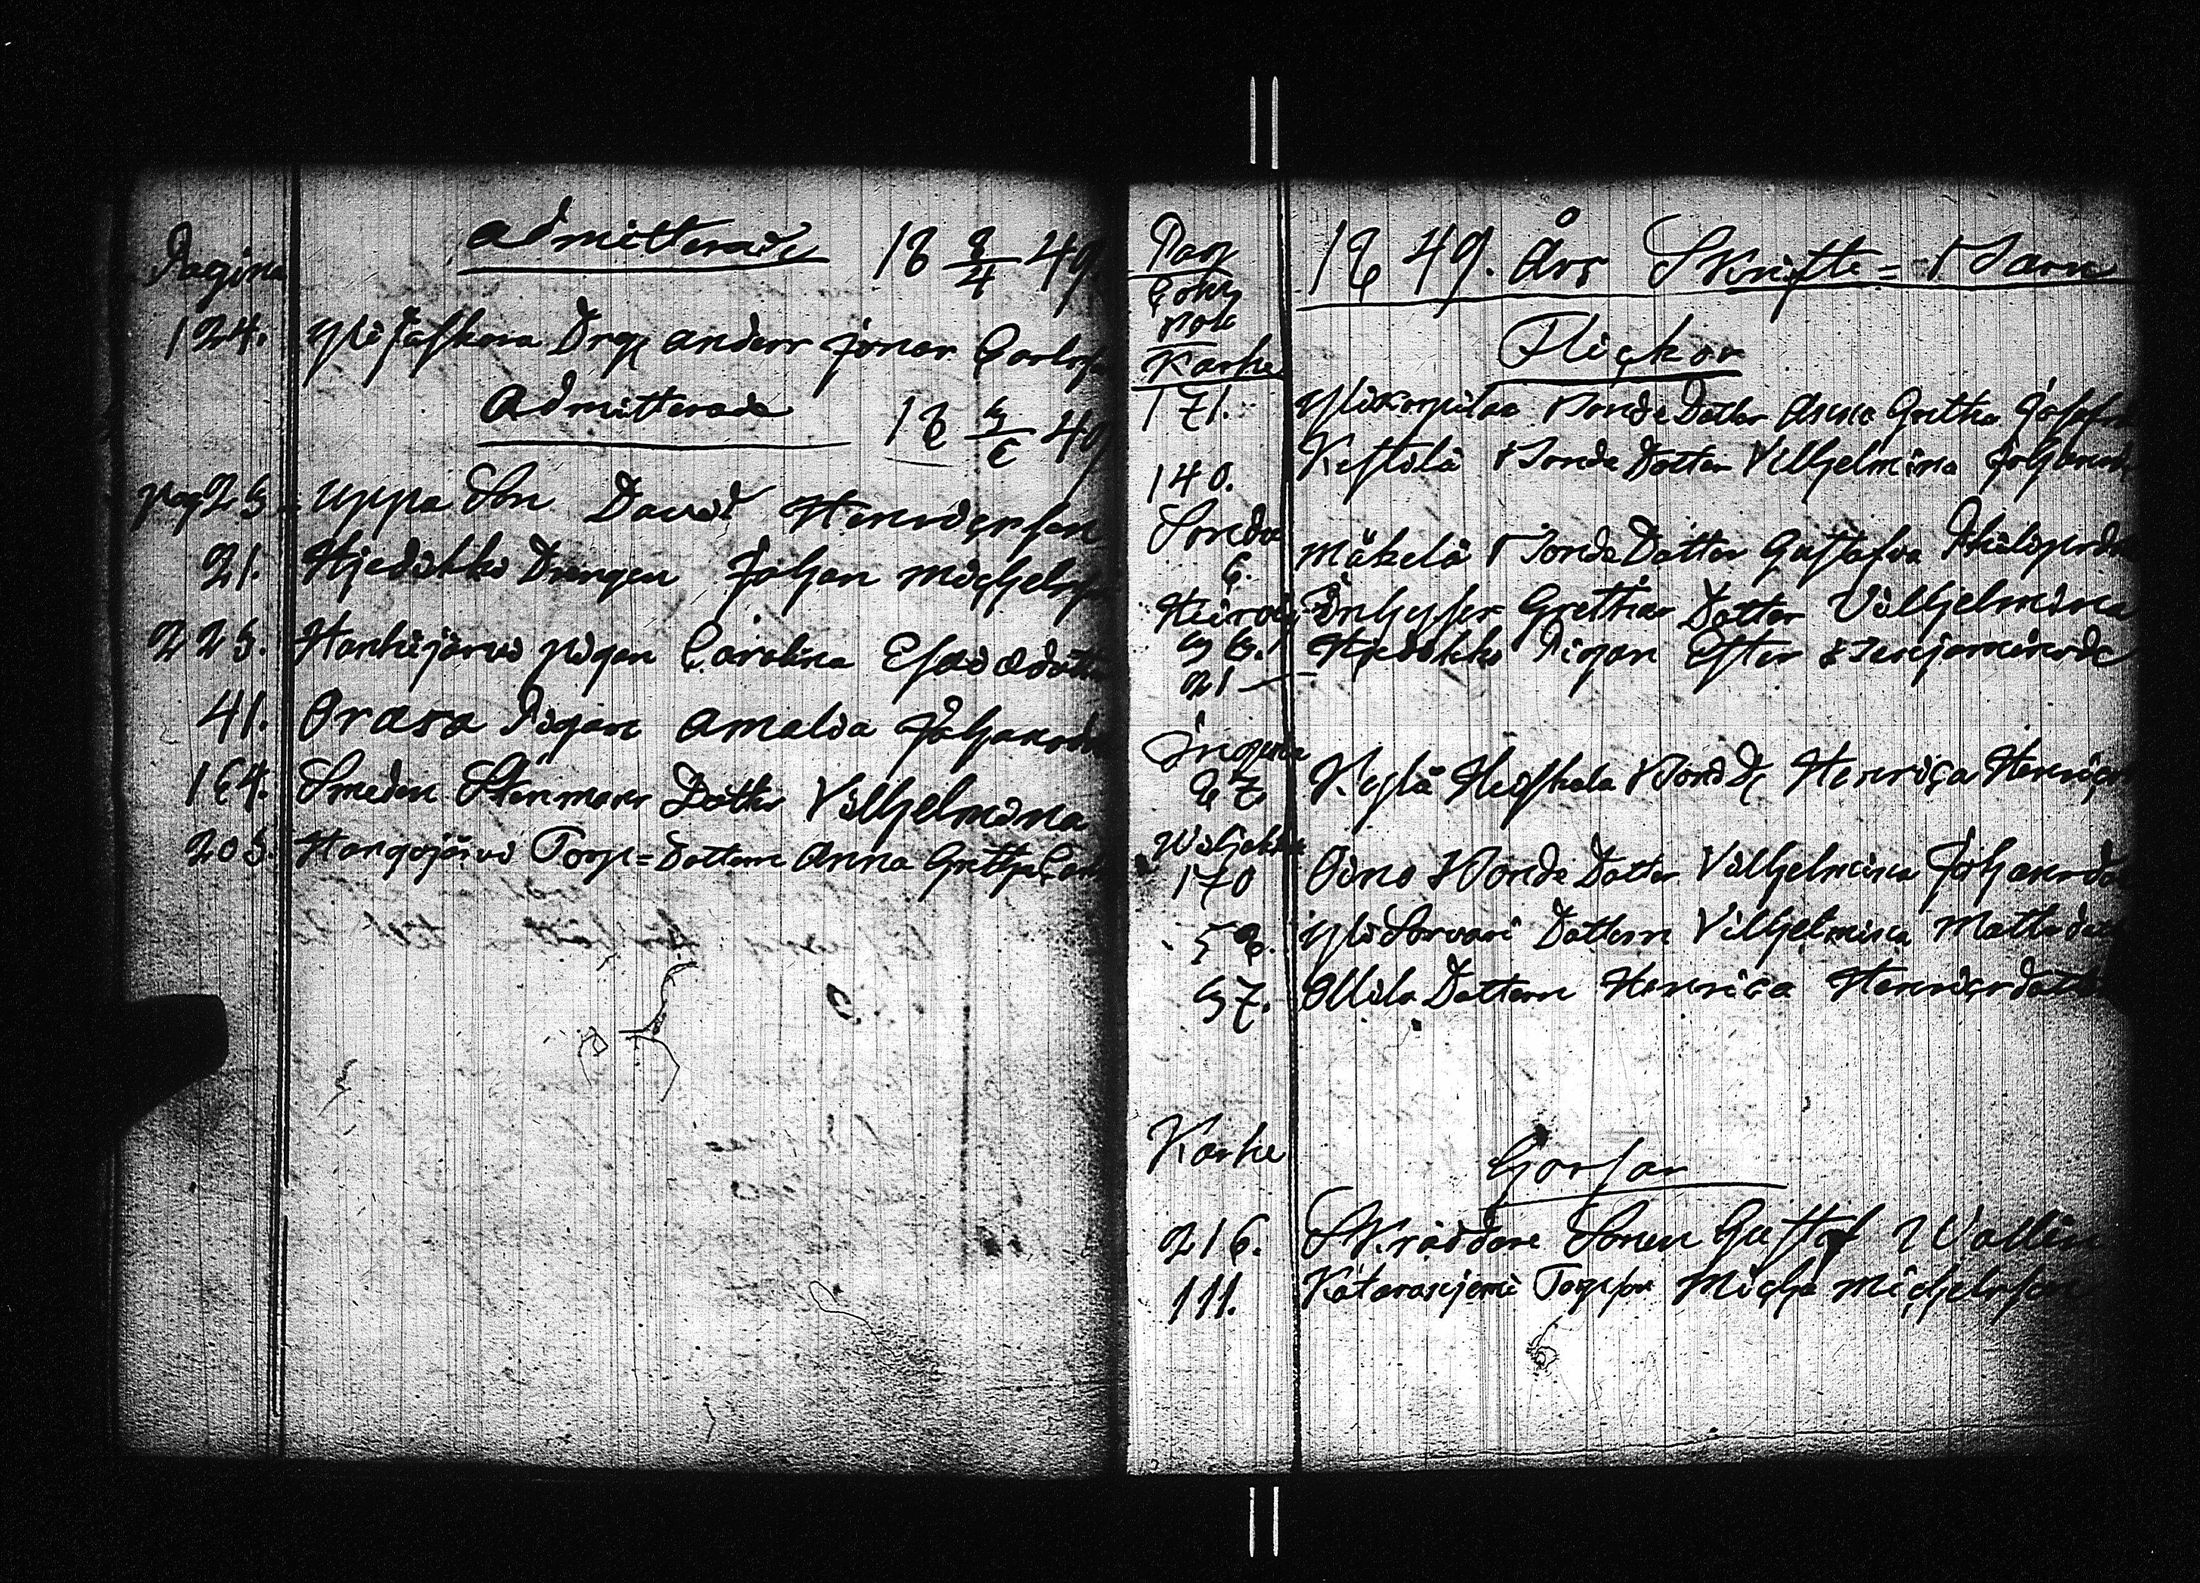 Pagina
Admitterade 18 8/4 49.
124. Yli Jaskara Drg Anders Jonas Carls
Admitterade 18 49
pag 25. Uppa Son David Henricsson
21. Hjedikko Drengen Johan Michels
225. Hanhijärvi pigan Carolina Esaiædott
41. Orasa Pigan Amalia Johansd
164. Smeden Stenmans Dotter Vilhelmina
205. Hangojärvi Torp= Dottern Anna Gretha Carl
Pag
Com
Bok
Karhe
1849. Års Skrifte= Barn
Flickor
171. Ylikorpilaa Bonde Dotter Anna Gretha Josefs
140. Kestilä Bonde Dotter Vilhelmina Johansd
Sondu
6. Mäkelä Bonde Dotter Gustafva Philipsd
Inhyses Grethas Dotter Vilhelmina
56.
21 Hjedikko Pigan Ester Benjaminsd
Ingena
67. Kylä Heiskala Bond D. Henrica Henrics
Viljakka
170 Oino Bonde Dotter Vilhelmina Johansd
58. Yli Sorvari Dottern Vilhelmina Mattsdott
57. Ollila Dottern Henrica Henricsdott
Karhe
Gossar
216. Skräddare Sonen Gustaf Wallin
111. Katarasijemi Torpson Micha Michelsson